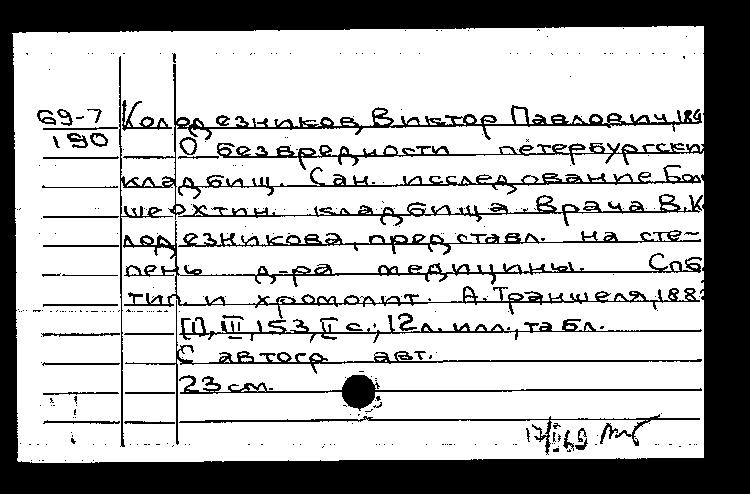 69-7 Колодезников, Виктор Павлович, 184
190 О безвредности петербургски
кладбищ. Сан. исследование Бол
шеохтин. кладбища. Врача В.К
лодезникова, представл. на сте-
пень д-ра медицины. Спб.
тип. и хромолит. А. Траншеля, 188
[I], III, 153, II с.; 12 л. илл., табл.
С автогр авт.
23 см.
17/II69